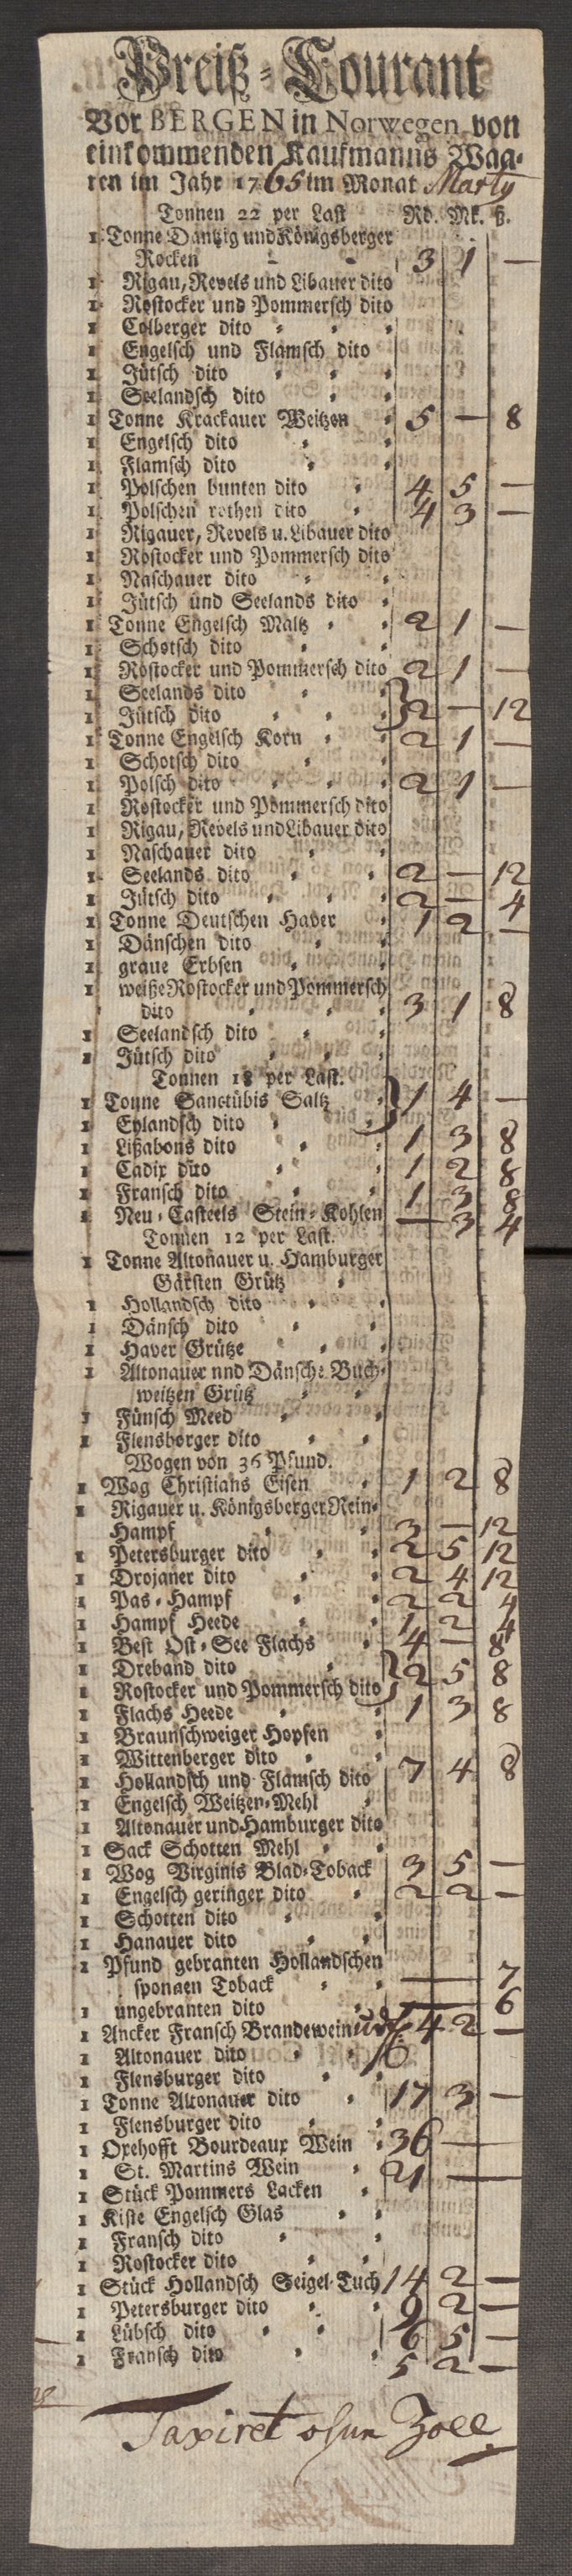 Preiß-Courant
Vor BERGEN in Norwegen von
einkommenden Kaufmanns Waa-
ren im Jahr 1765 im Monat Marty
Tonnen 22 per Last Rd. Mk. ß.
1 Tonne Dantzig und Königsberger
Rocken - - 3 1 —
1 Rigau, Revels und Libauer dito
1 Rostocker und Pommersch dito
1 Colberger dito
1 Engelsch und Flamsch dito
1 Jütsch dito
1 Seelandsch dito
1 Tonne Krackauer Weitzen 5 — 8
1 Engelsch dito
1 Flamsch dito
1 Polschen bunten dito 4 5 —
1 Polschen rothen dito 4 3 —
1 Rigauer, Revels u. Libauer dito
1 Rostocker und Pommersch dito
1 Naschauer dito
1 Jütsch und Seelands dito
1 Tonne Engelsch Maltz 2 1 —
1 Schotsch dito
1 Rostocker und Pommersch dito 2 1 —
1 Seelands dito
1 Jütsch dito } 2 — 12
1 Tonne Engelsch Korn 2 1 —
1 Schotsch dito
1 Polsch dito 2 1 —
1 Rostocker und Pommersch dito
1 Rigau, Revels und Libauer dito
1 Naschauer dito
1 Seelands dito 2 — 12
1 Jütsch dito 2 — 4
1 Tonne Deutschen Haber 1 2 —
1 Dänschen dito
1 graue Erbsen
1 weiße Rostocker und Pommersch
dito 3 1 8
1 Seelandsch dito
1 Jütsch dito
Tonnen 18 per Last.
1 Tonne Sanctübis Saltz } 1 4 —
1 Eylandsch dito
1 Lißabons dito 1 3 8
1 Cadix dito 1 2 8
1 Fransch dito 1 3 8
1 Neu-Casteels Stein-Kohlen — 3 4
Tonnen 12 per Last.
1 Tonne Altonauer u. Hamburger
Gärsten Grütz
1 Hollandsch dito
1 Dänsch dito
1 Haver Grütze
1 Altonauer nnd Dänsche Buch-
weitzen Grütz
1 Fünsch Meed
1 Flensborger dito
Wogen von 36 Pfund.
1 Wog Christians Eisen 1 2 8
1 Rigauer u. Königsberger Rein-
Hampf 3 — 12
1 Petersburger dito 2 5 12
1 Drojaner dito 2 4 12
1 Pas-Hampf 2 2 4
1 Hampf Heede 1 2 4
1 Best Ost-See Flachs 4 — 8
1 Dreband dito } 2 5 8
1 Rostocker und Pommersch dito
1 Flachs Heede 1 3 8
1 Braunschweiger Hopfen
1 Wittenberger dito
1 Hollandsch und Flamsch dito 7 4 8
1 Engelsch Weitzen-Mehl
1 Altonauer und Hamburger dito
1 Sack Schotten Mehl
1 Wog Virginis Blad-Toback 3 5 —
1 Engelsch geringer dito 2 2 —
1 Schotten dito
1 Hanauer dito
1 Pfund gebranten Hollandschen
sponnen Toback — 7
1 ungebranten dito — 6
1 Ancker Fransch Brandewein 4 2 —
1 Altonauer dito
1 Flensburger dito
1 Tonne Altonauer dito 17 3 —
1 Flensburger dito
1 Oxehofft Bourdeaux Wein 36 —
1 St. Martins Wein 21 —
1 Stück Pommers Lacken
1 Kiste Engelsch Glas
1 Fransch dito
1 Rostocker dito
1 Stück Hollandsch Seigel-Tuch 14 2 —
1 Petersburger dito 9 2 —
1 Lübsch dito 6 5 —
1 Fransch dito 5 2 —
Taxiret ohne Zoll